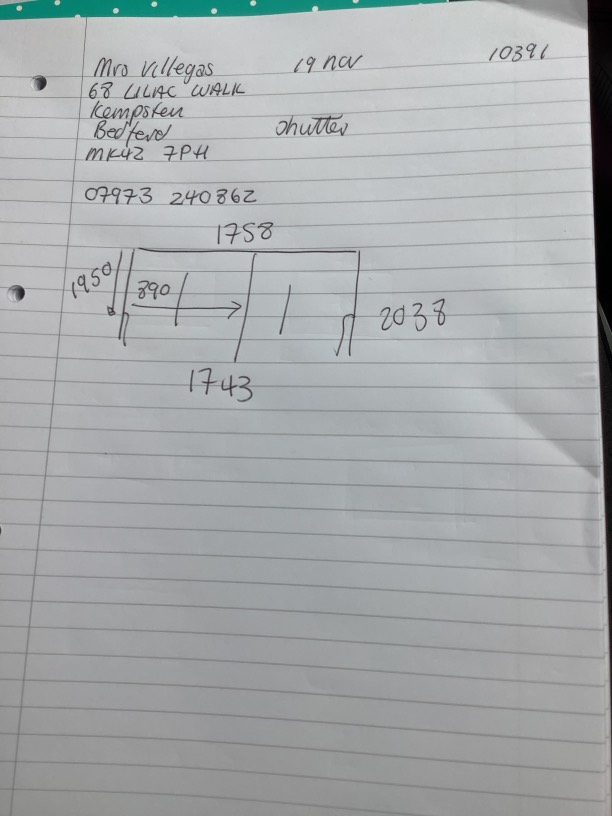 Mrs Villegas 19 nov 10391
68 LILIAC WALK
Kempsten
Bedford Shutter
MK42 7PH
07973 240862
1758
1950 890 2038
1743